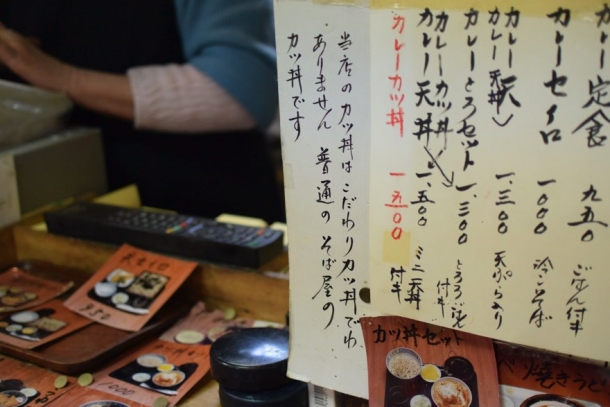 カレー定食 九五〇 ごはん付キ
カレーセイロ 一〇〇〇 冷こそば
カレー天 一、三〇〇 天ぷら入り
カレーとろセット 一、三〇〇 とろろごはん付キ
カレーカツ丼
カレー天丼 一、五〇〇 ミニ天丼付キ
カレーカツ丼 一五〇〇
当店のカツ丼はこだわりカツ丼でわ
ありません 普通のそば屋の
カツ丼です
カツ丼セット
焼きう